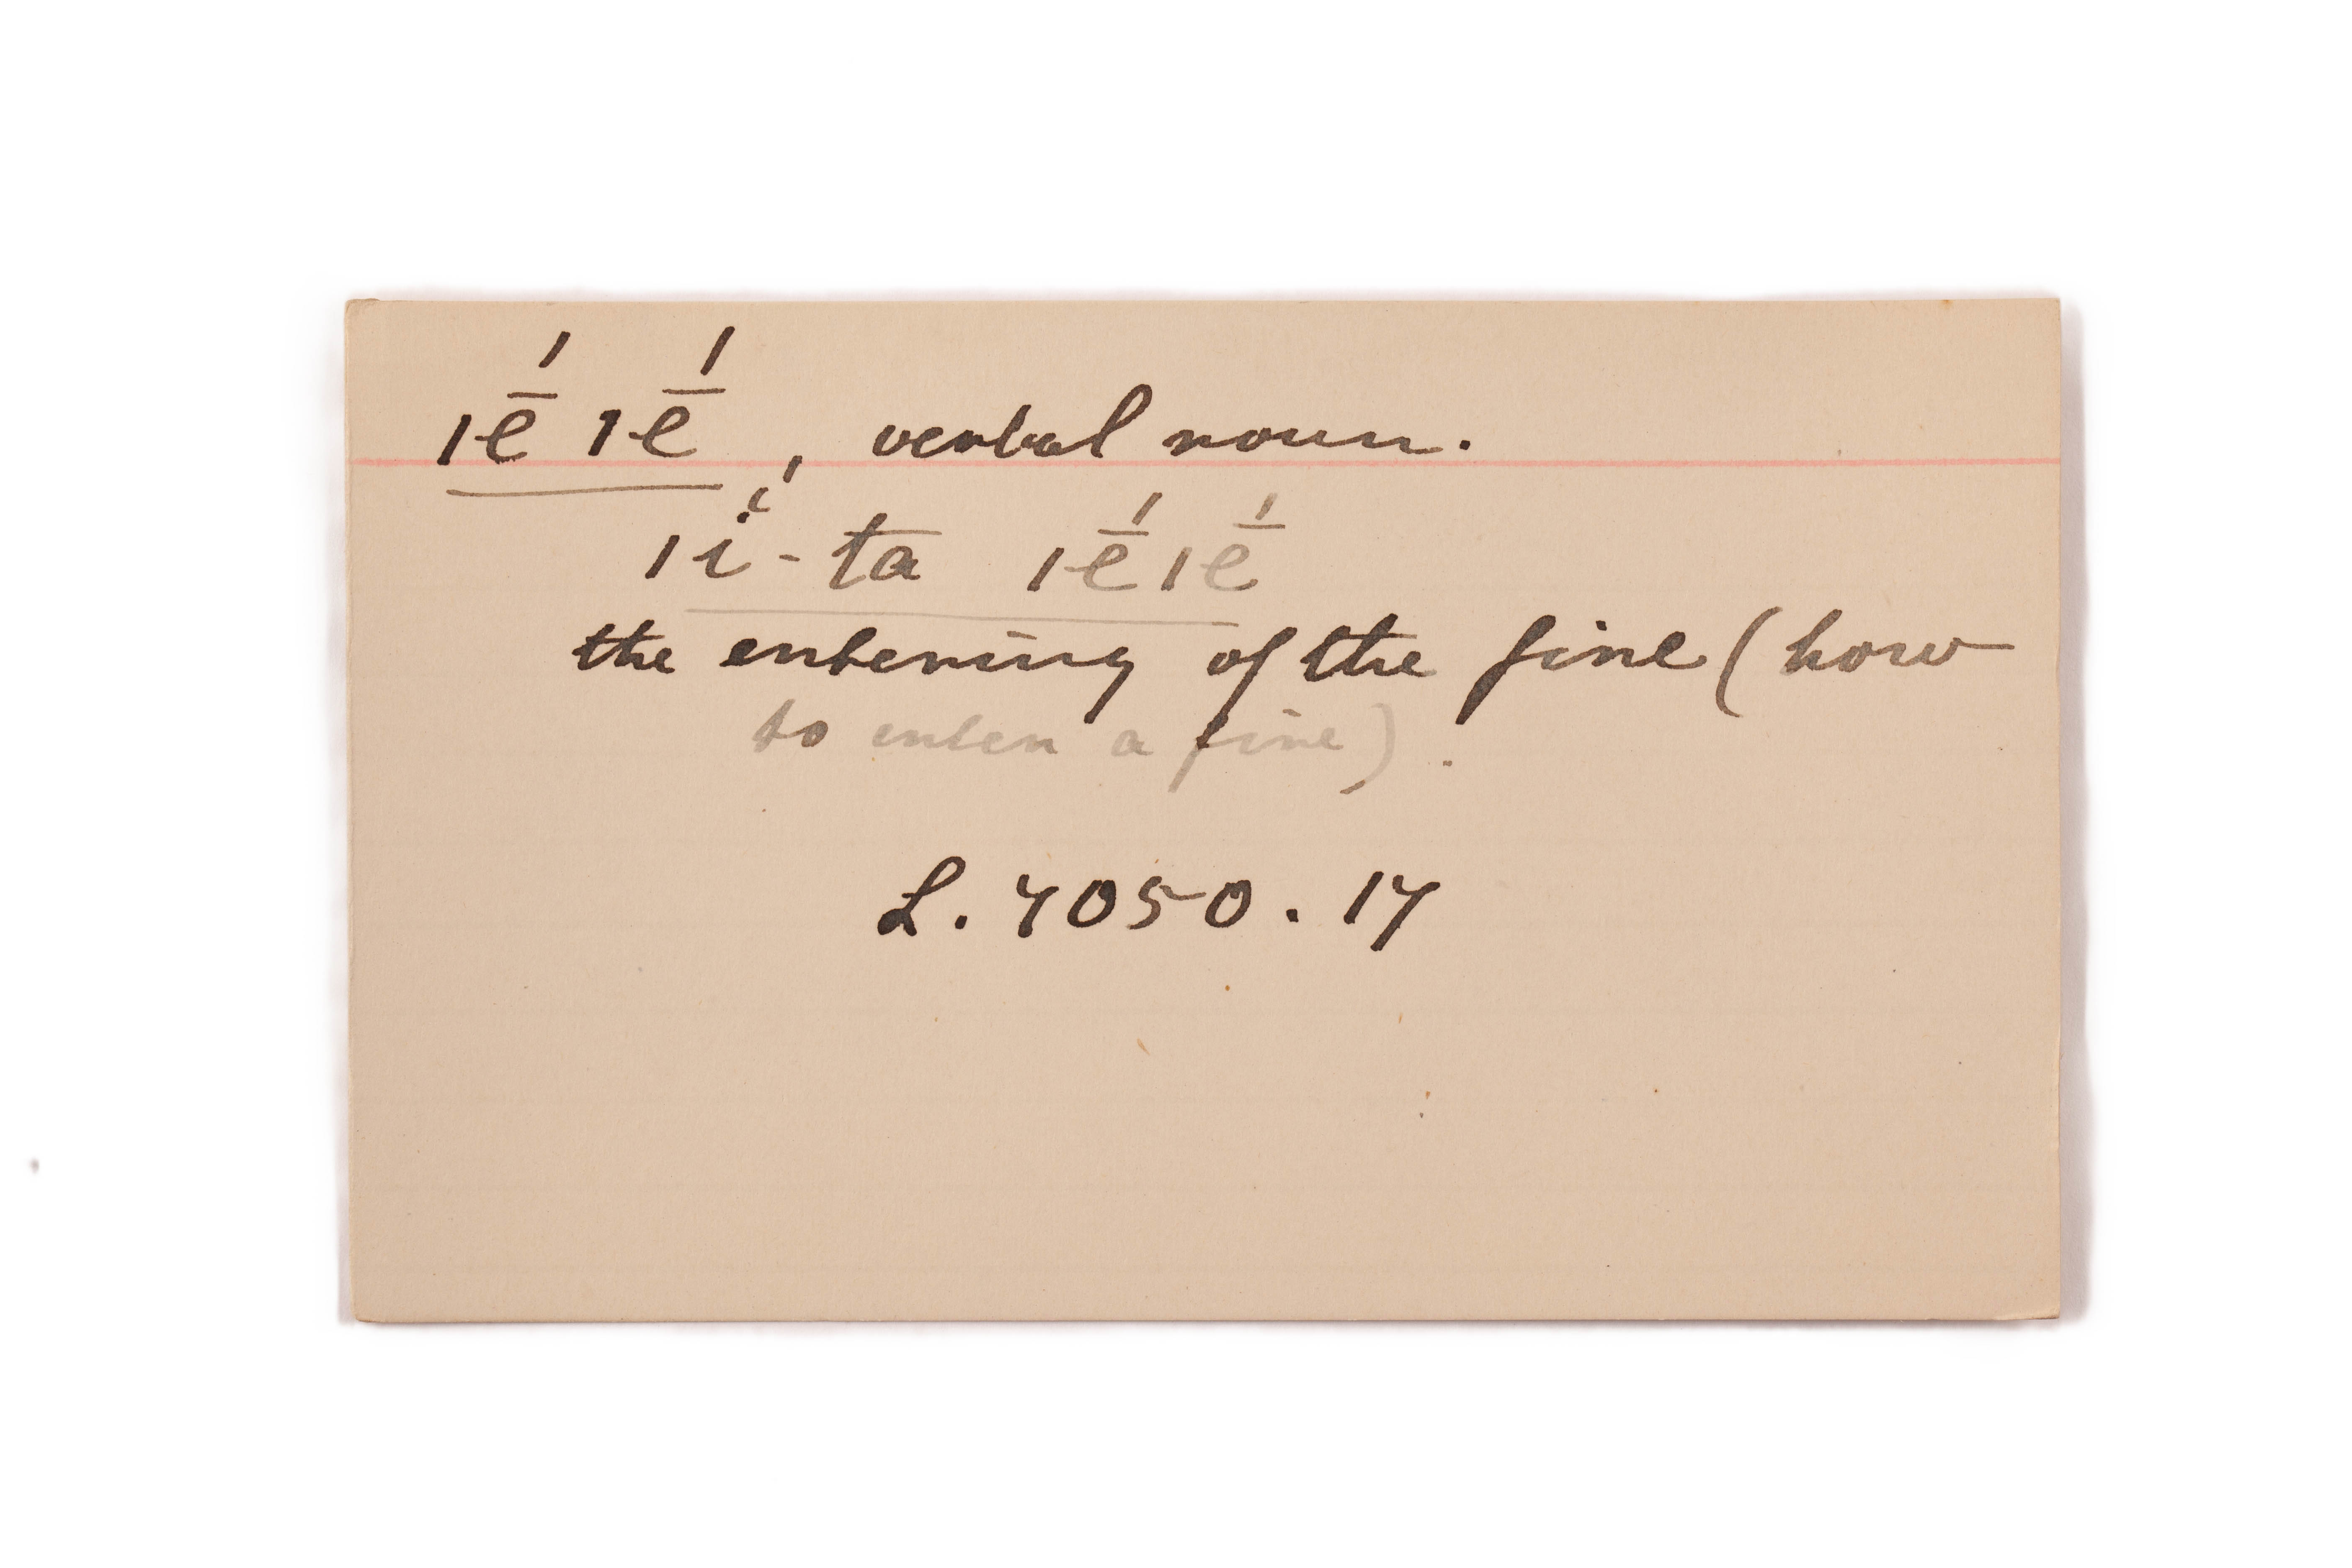 ıḗ ıḗ, verbal noun.
ıi̔́-ta ıḗıḗ
the entering of the fine (how
to enter a fine).
L. 4050.14